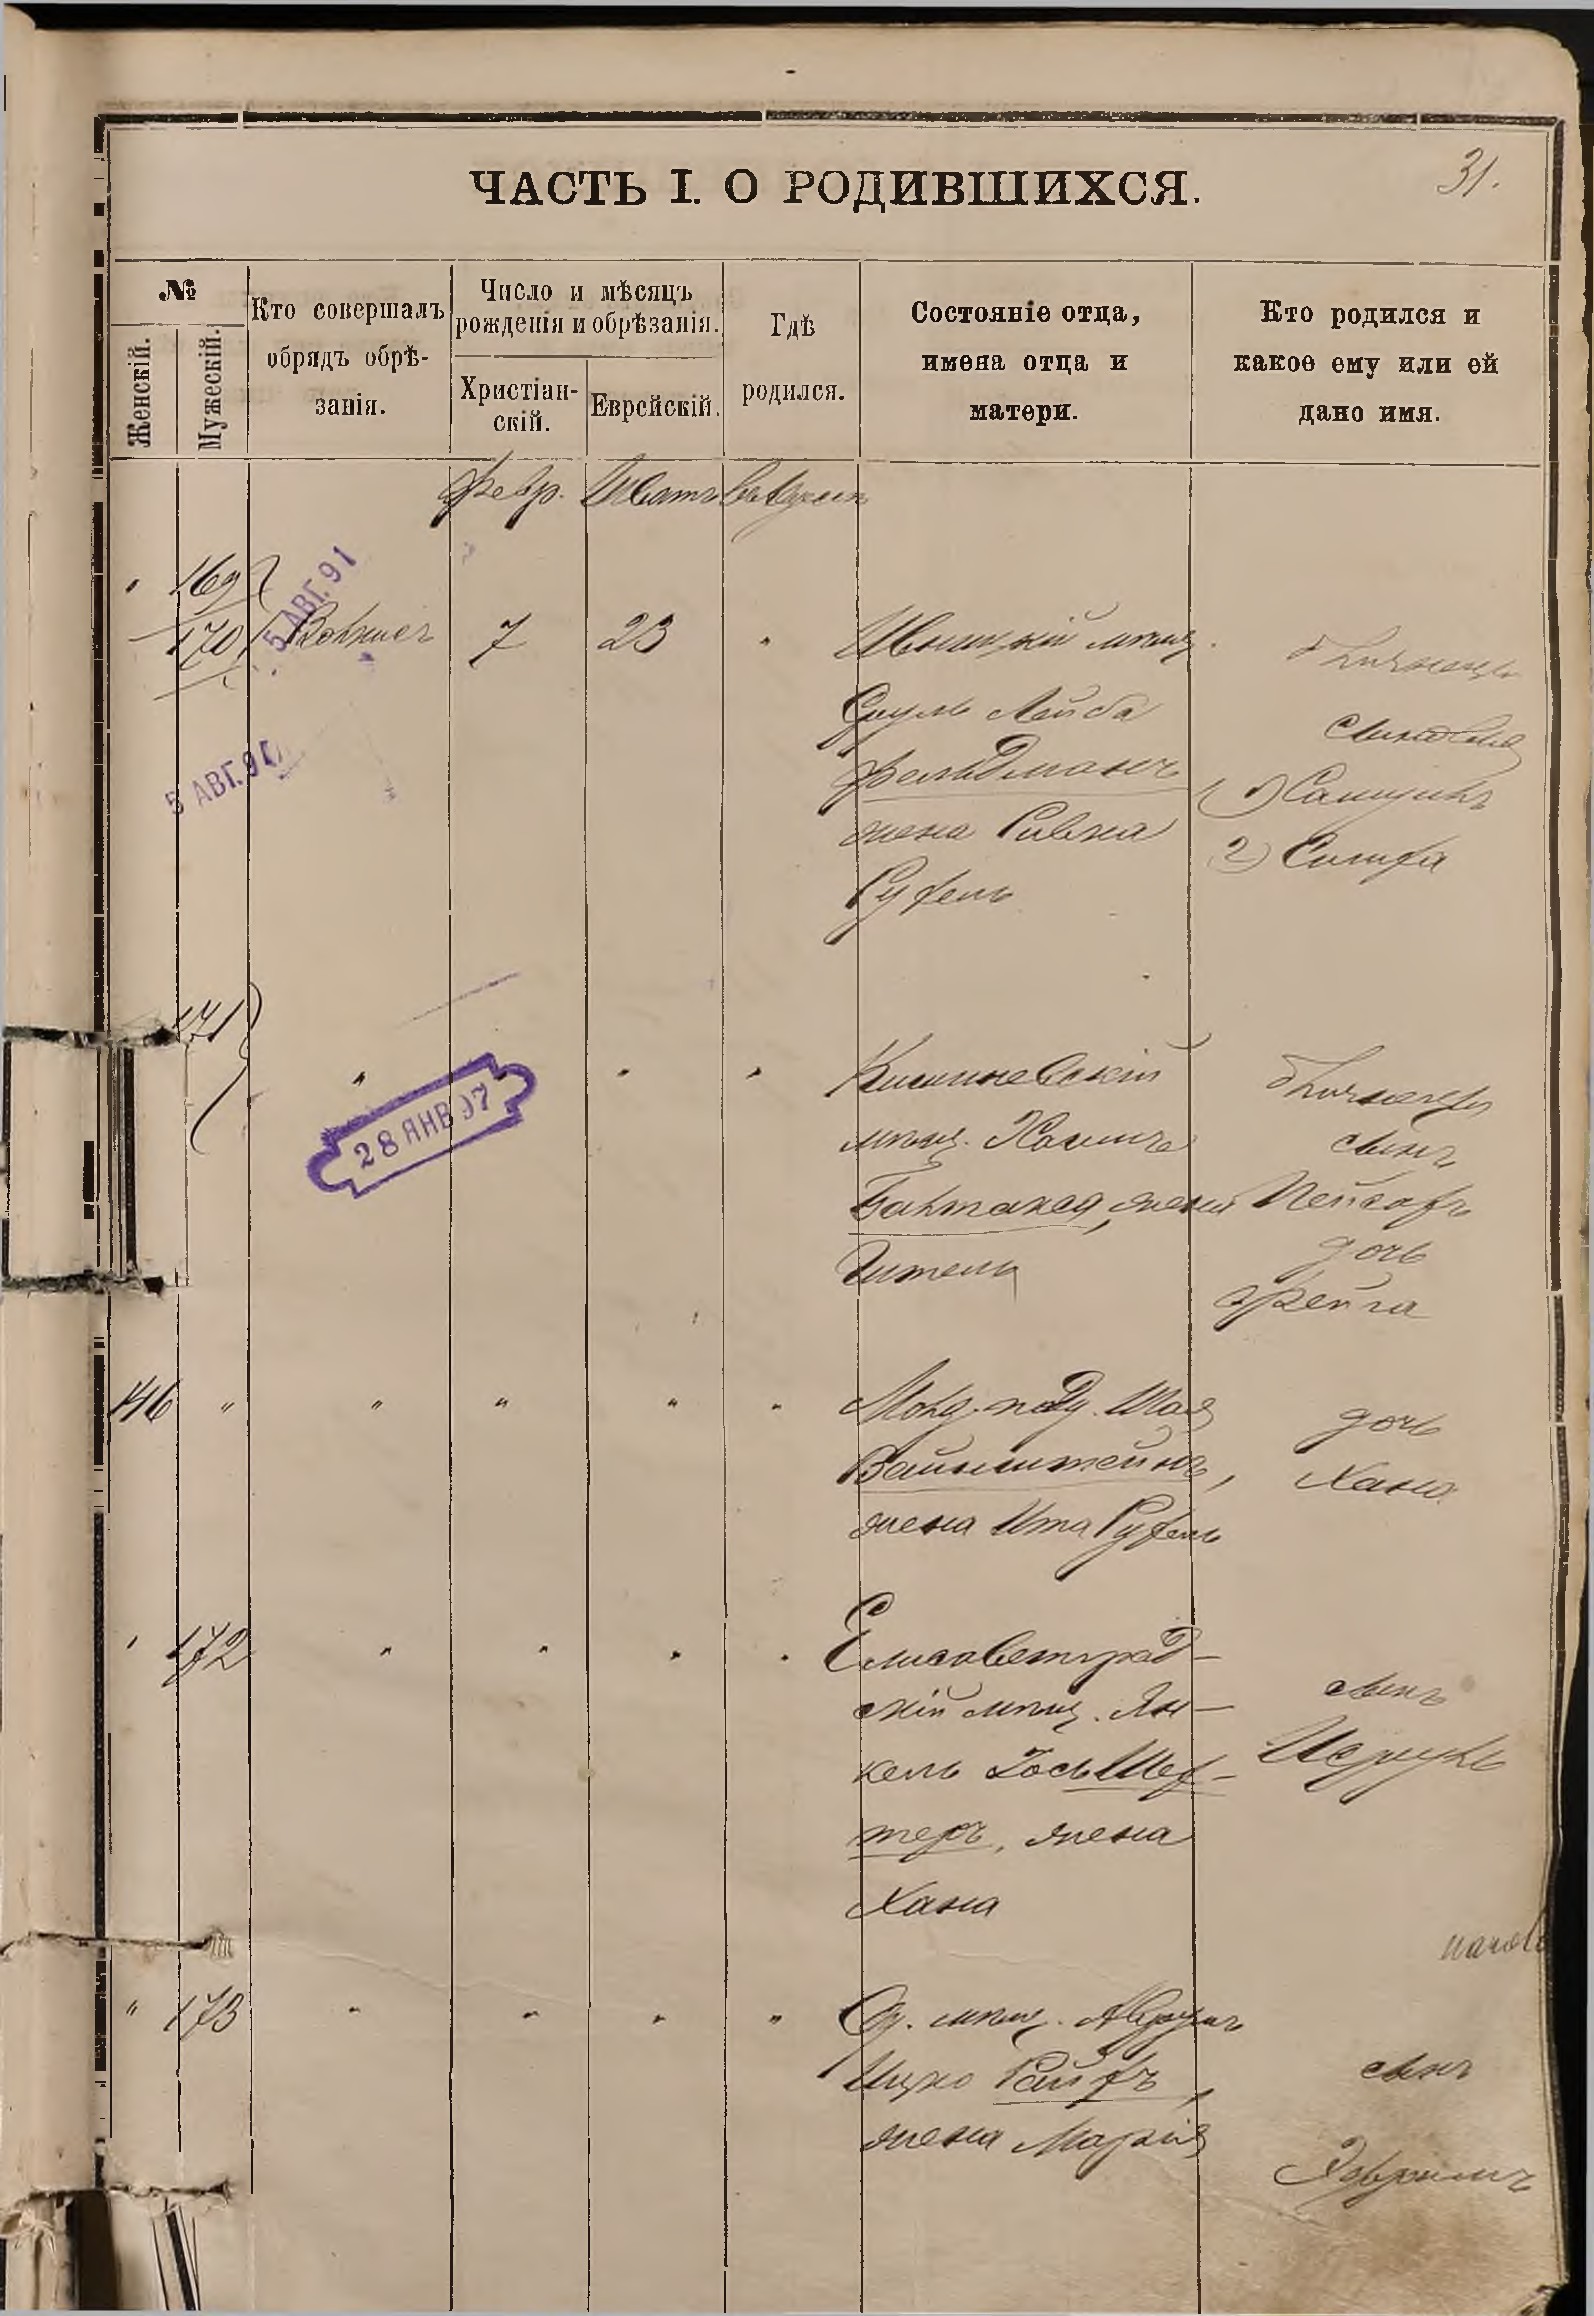 31.
ЧАСТЬ I. О РОДИВШИХСЯ.
№
Женскій.
Мужескій.
Кто совершалъ
обрядъ обрѣ-
занія.
Число и мѣсяцъ
рожденія и обрѣзанія.
Христіан-
скій.
Еврейскій.
Гдѣ
родился.
Состояніе отца,
имена отца и
матери.
Кто родился и
какое ему или ей
дано имя.
Февр. Шватъ
5 АВГ. 91
5 АВГ. 91
" 169
170 7 23 " мѣщ.
Сруль Лейба
Фельдманъ
жена Ривка
Рухель
близнецы
сыновья
1) Самуилъ
2) Симха
171 " " "
28 ЯНВ 97
Кишиневскій
мѣщ. Хаимъ
жена
Гитель
близнецы
сынъ
Пейсахъ
дочь
Фейга
146 " " " " "
под. Шая
Вайнштейнъ,
жена Ита Рухель
дочь
Хана
" 172 " " " "
Елисаветград-
скій мѣщ. Ян-
кель Іось Шех-
теръ, жена
Хана
сынъ
Исруль
" 173 " " " "
Од. мѣщ. Аврумъ
Ицко Рейфъ,
жена Марія
сынъ
Эфраимъ